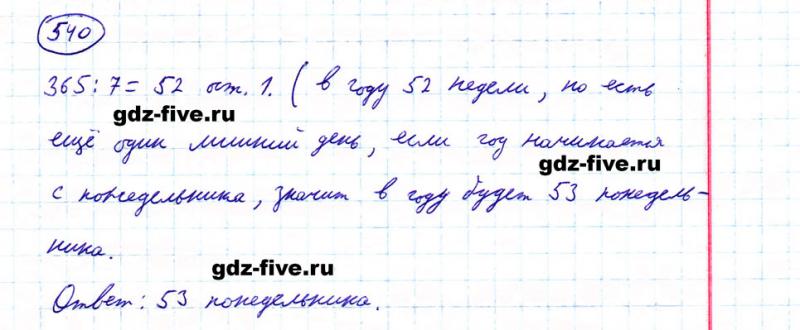 540
365:7= 52 ост. 1. ( в году 52 недели, но есть
gdz-five.ru
ещё один лишний день, если год начинается
gdz-five.ru
с понедельника, значит в году будет 53 понедель-
ника.
gdz-five.ru
Ответ: 53 понедельника.